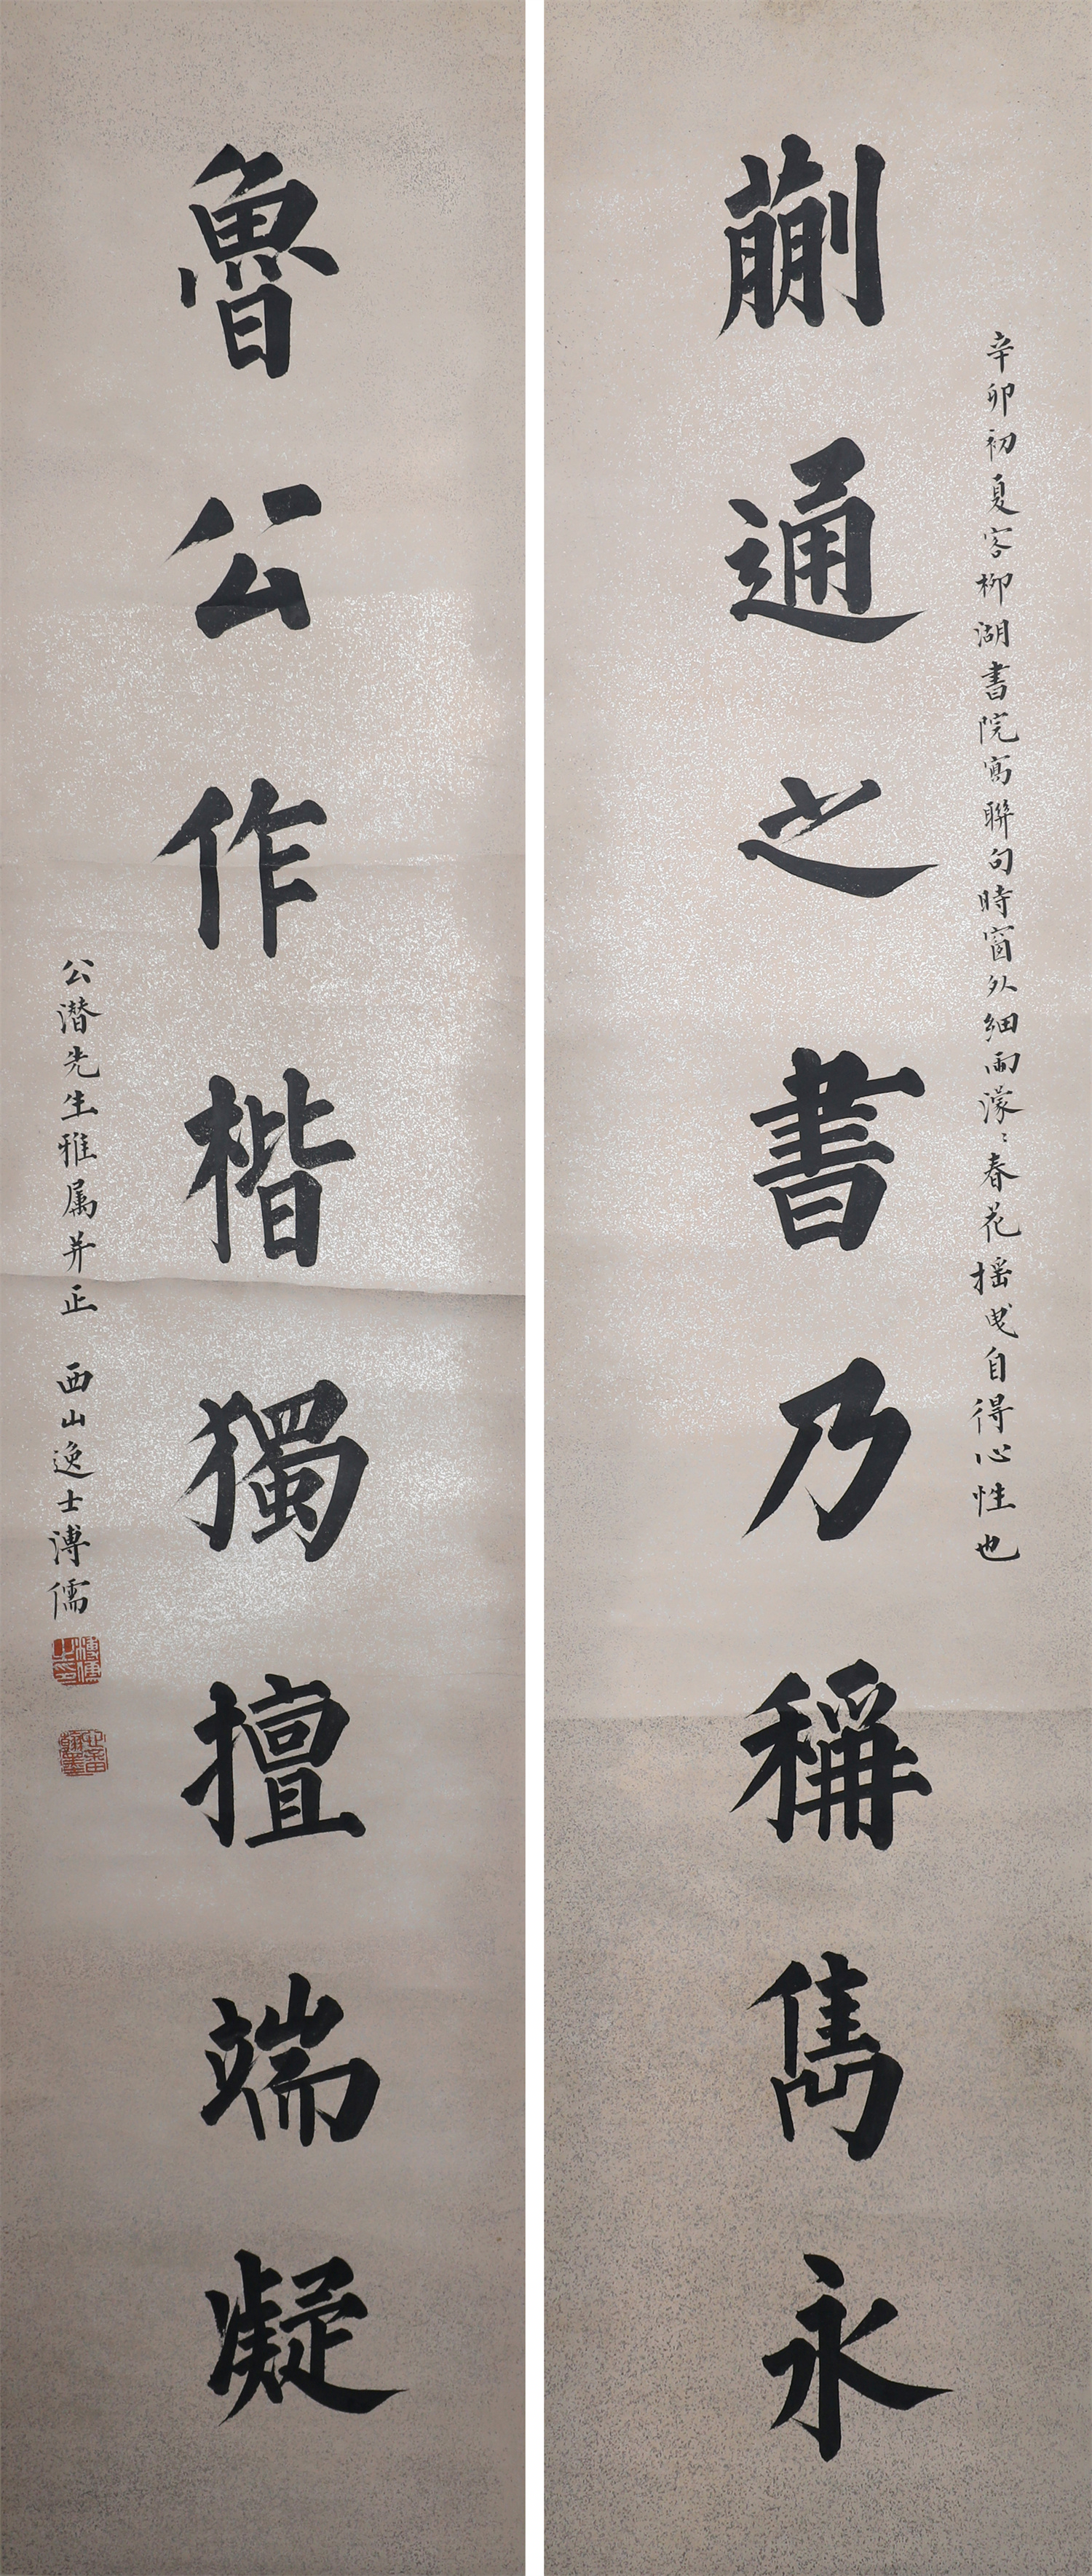 蒯通之書乃稱雋永
辛卯初夏客柳湖書院寫聯句時窗外細雨濛〻春花摇曵自得心性也
魯公作楷獨擅端凝
公潜先生雅属并正 西山逸士溥儒
溥儒之印